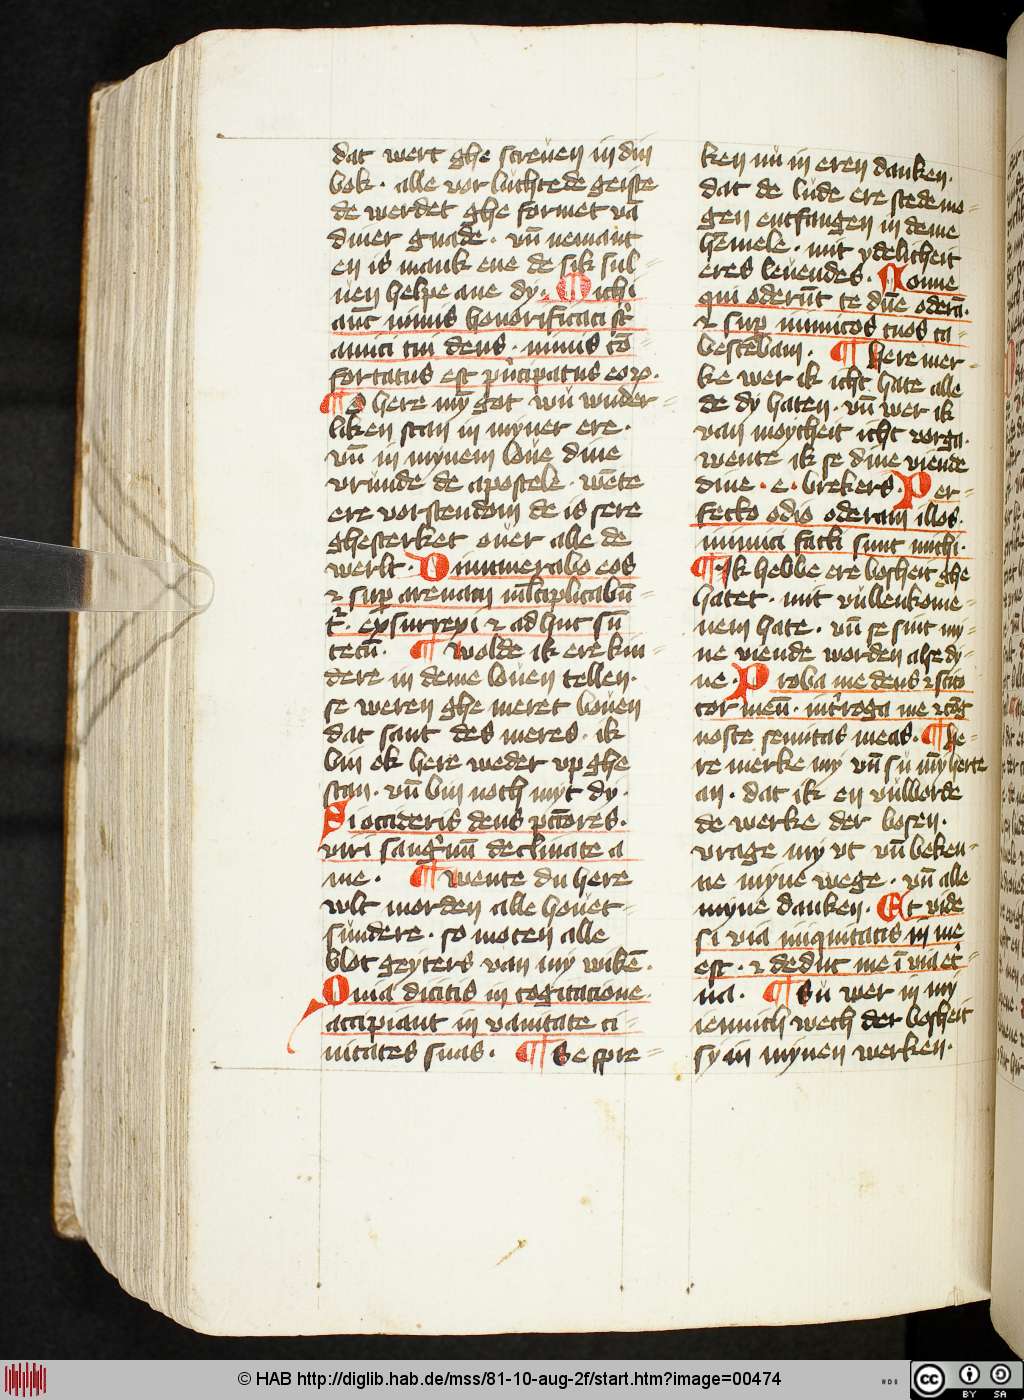 dat wert ghe screuen in din
bok · alle vor luchtede geiste
de werdet ghe formet vā
diner gnade · vn̄ nemant
en is mank ene de sik sul=
uen helpe ane dy · Michi
aut̄ nimis honorificati st̄
amici tui deus · nimis cō=
fortatus est pͥncipatus eoꝝ ·
¶ O here my̅ got wu wuder=
liken stan in myner ere ·
vn̄ in mynem loue dine
vrunde de apostele · wēte
ere vorstendom de is sere
ghesterket ouer alle de
werlt · Dinumerabo eos
⁊ suꝑ arenam ml̄tiplicabūt=
r̄ · exsurrexi ⁊ adhuc sū
tecū · ¶ Wolde ik ere kin=
dere in deme louen tellen ·
se weren ghe meret bouen
dat sant des meres · ik
bin ok here weder vp ghe
stan · vn̄ bin noch myt dy ·
Si occideris deus pc̄tores ·
viri sangͥnū declinate a
me · ¶ Wente du here
wlt morden alle houet=
sundere · so moten alle
blot geyters van my wikē ·
Quia dicitis in cogitacione
accipiant in vanitate ci=
uitates suas · ¶ Se spre=
ken nu in eren danken ·
dat de lude ere stede mo=
gen entfangen in deme
hēmele · mit ydelicheit
eres leuendes · Nonne
qui oderūt te dn̄e oderā ·
⁊ suꝑ inimicos tuos ta=
bescebam · ¶ Here mer=
ke wer ik icht hate alle
de dy haten · vn̄ wer ik
van moytheit icht vorga ·
wente ik se dine viende
dine · e · brekers · Per=
fecto odio oderam illos ·
inimici facti sunt michi ·
¶ Ik hebbe ere bosheit ghe
hatet · mit vullenkome=
nem hate · vn̄ se sint my=
ne viende worden alse dy=
ne · Proba me deus ⁊ scito
cor meū · int̄roga me ⁊ cōg
nosce semitas meas · ¶ He=
re merke my vn̄ su my̅ herte
an · dat ik en vulborde
de werke der bosen ·
vrage my vt vn̄ beken=
ne myne wege · vn̄ alle
myne danken · Et vide
si via iniquitatis in me
est · ⁊ deduc me ī via et̄=
na · ¶ Su wer in my
iennich wech der bosheit
sy in mynen werken ·
© HAB http://diglib.hab.de/mss/81-10-aug-2f/start.htm?image=00474
cc BY SA